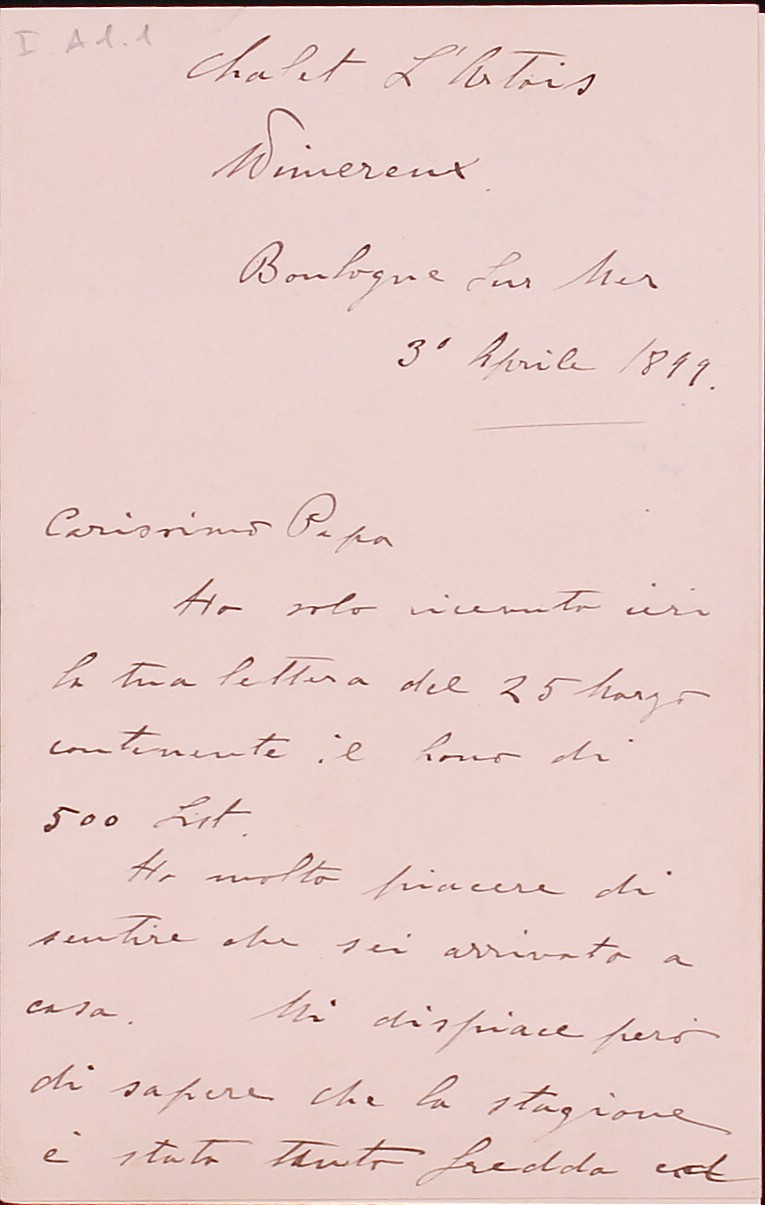 I A 1.1
Chalet L'Artois
Wimereux.
Boulogne sur Mer
3° Aprile 1899.
Carissimo Papa
Ho solo ricevuto ieri
la tua lettera del 25 Marzo
contenente il bono di
500 List.
Ho molto piacere di
sentire che sei arrivato a
casa. Mi dispiace però
di sapere che la stagione
è stata tanto fredda ed